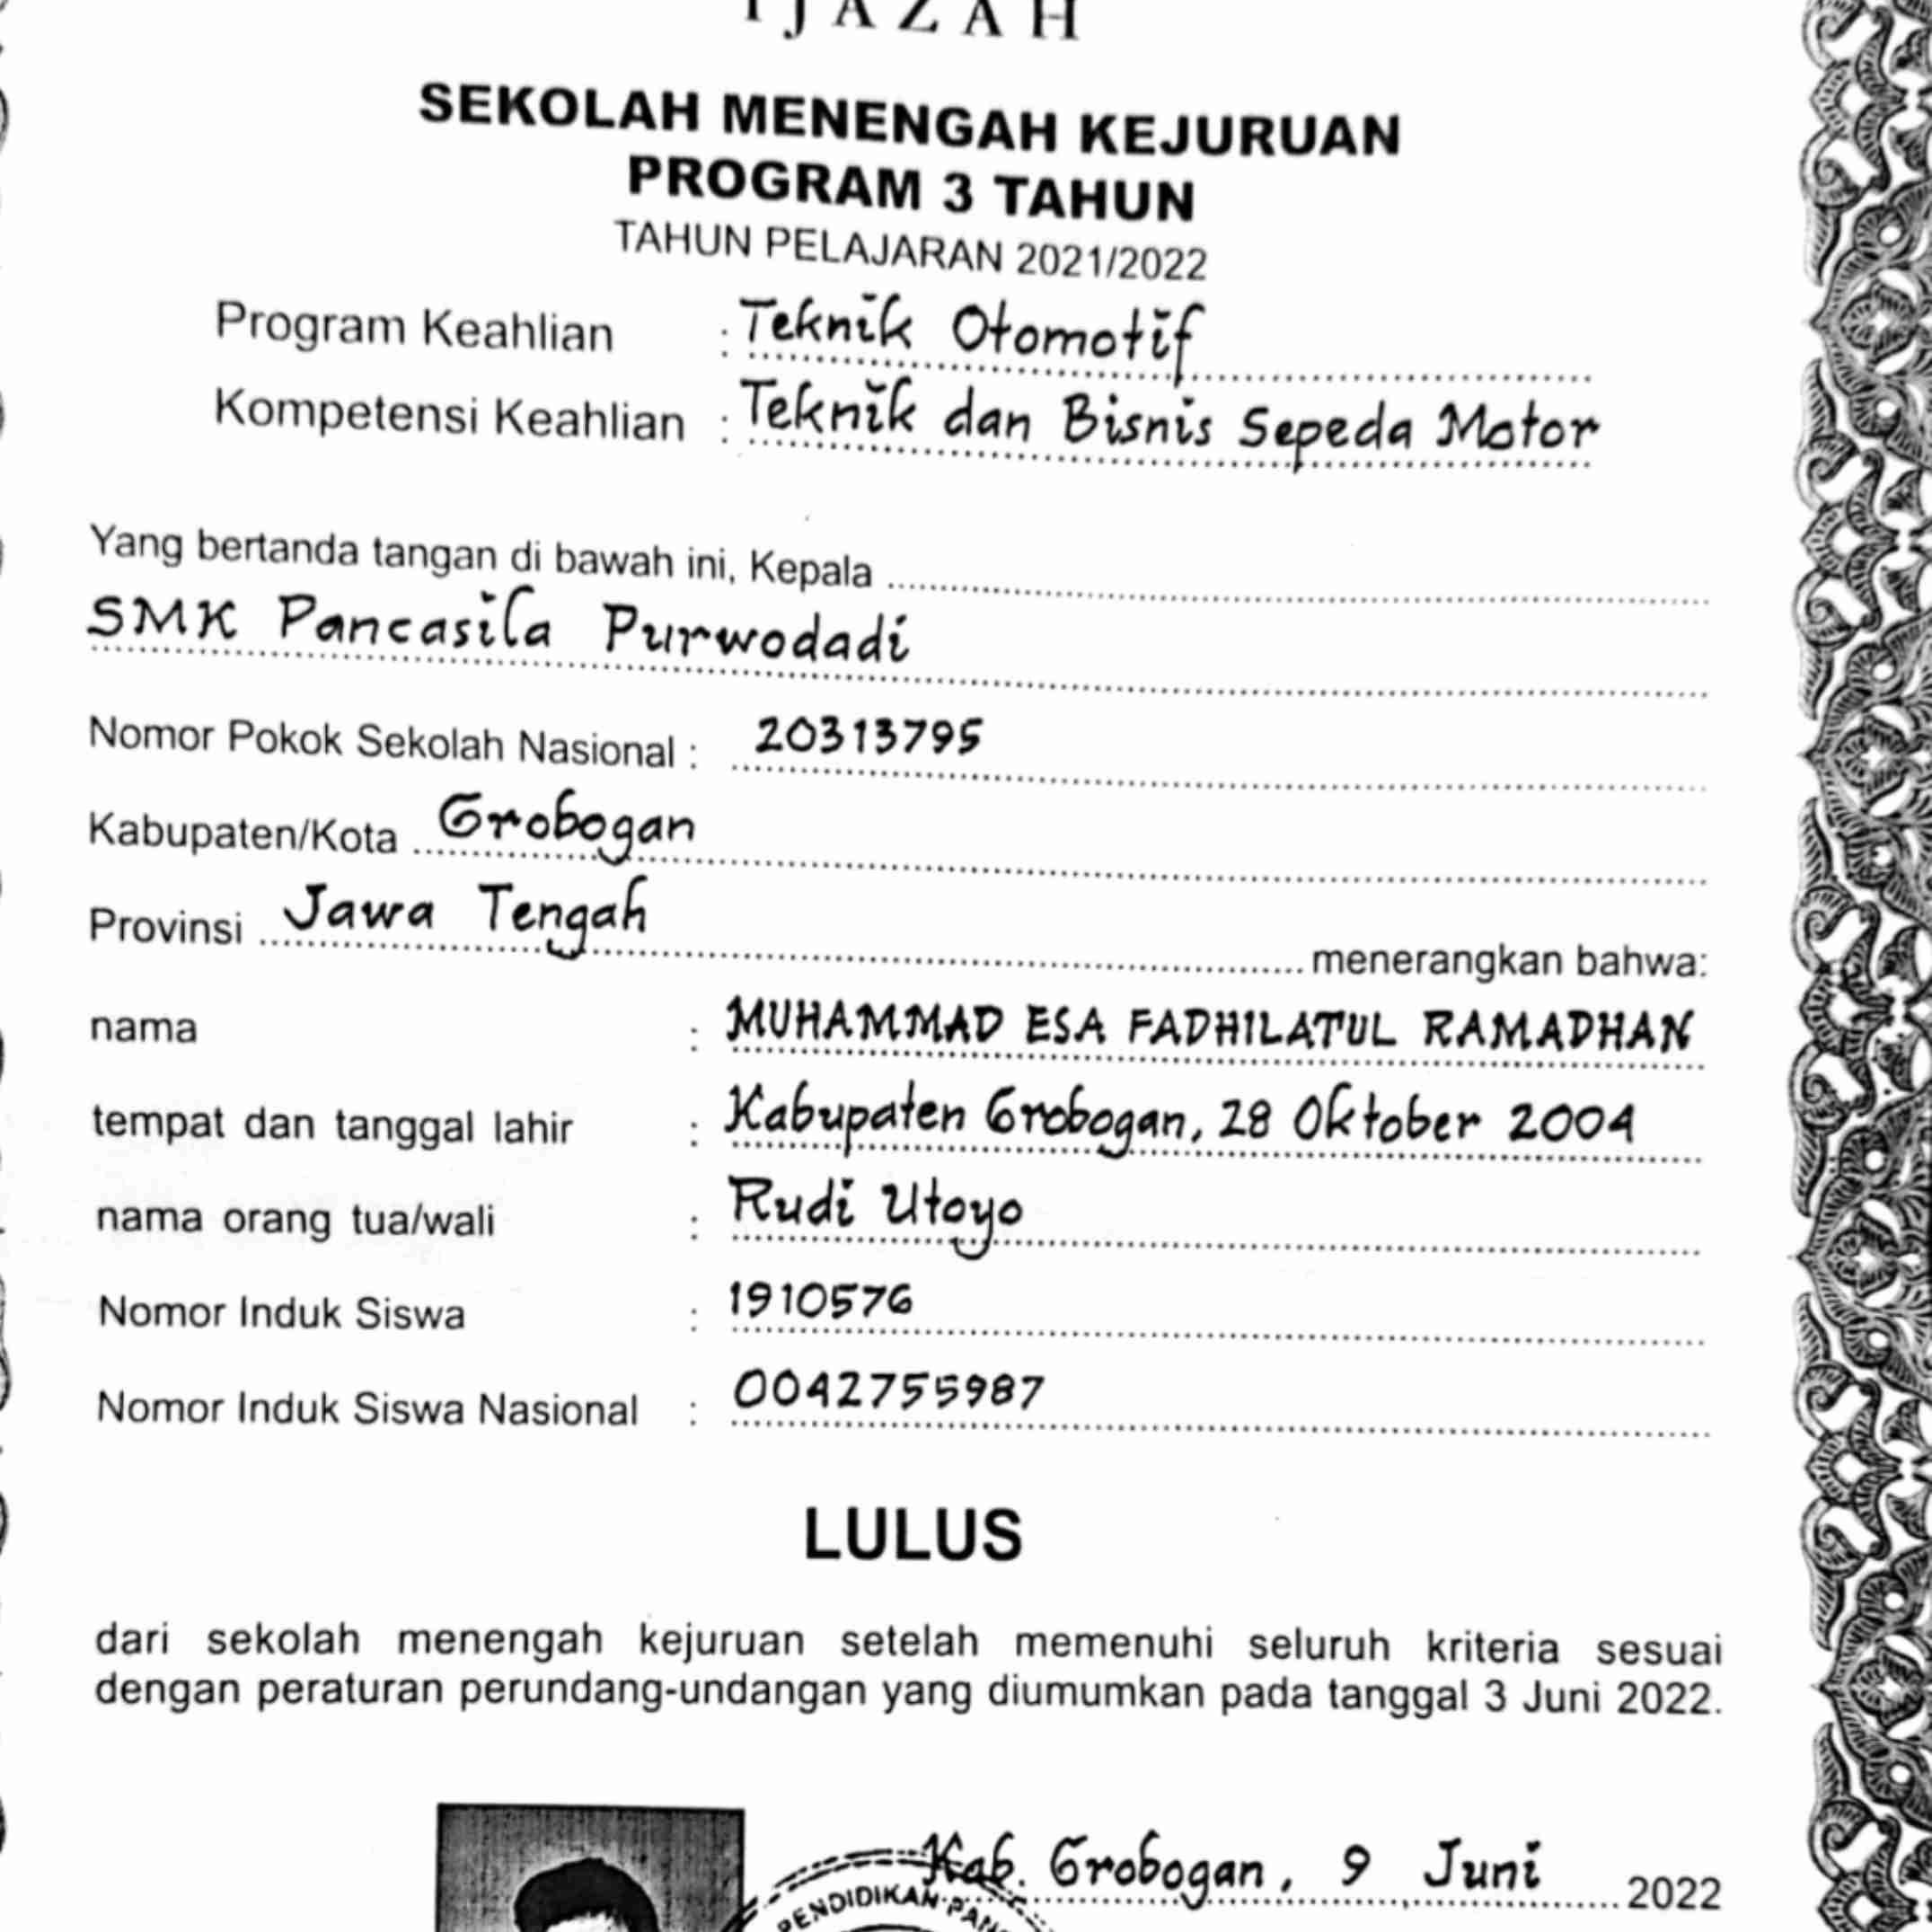 IJAZAH
SEKOLAH MENENGAH KEJURUAN
PROGRAM 3 TAHUN
TAHUN PELAJARAN 2021/2022
Program Keahlian : Teknik Otomotif
Kompetensi Keahlian : Teknik dan Bisnis Sepeda Motor
Yang bertanda tangan di bawah ini, Kepala
SMK Pancasila Purwodadi
Nomor Pokok Sekolah Nasional : 20313795
Kabupaten/Kota Grobogan
Provinsi Jawa Tengah menerangkan bahwa:
nama : MUHAMMAD ESA FADHILATUL RAMADHAN
tempat dan tanggal lahir : Kabupaten Grobogan, 28 Oktober 2004
nama orang tua/wali : Rudi Utoyo
Nomor Induk Siswa : 1910576
Nomor Induk Siswa Nasional : 0042755987
LULUS
dari sekolah menengah kejuruan setelah memenuhi seluruh kriteria sesuai
dengan peraturan perundang-undangan yang diumumkan pada tanggal 3 Juni 2022.
Kab. Grobogan, 9 Juni 2022
PENDIDIKAN